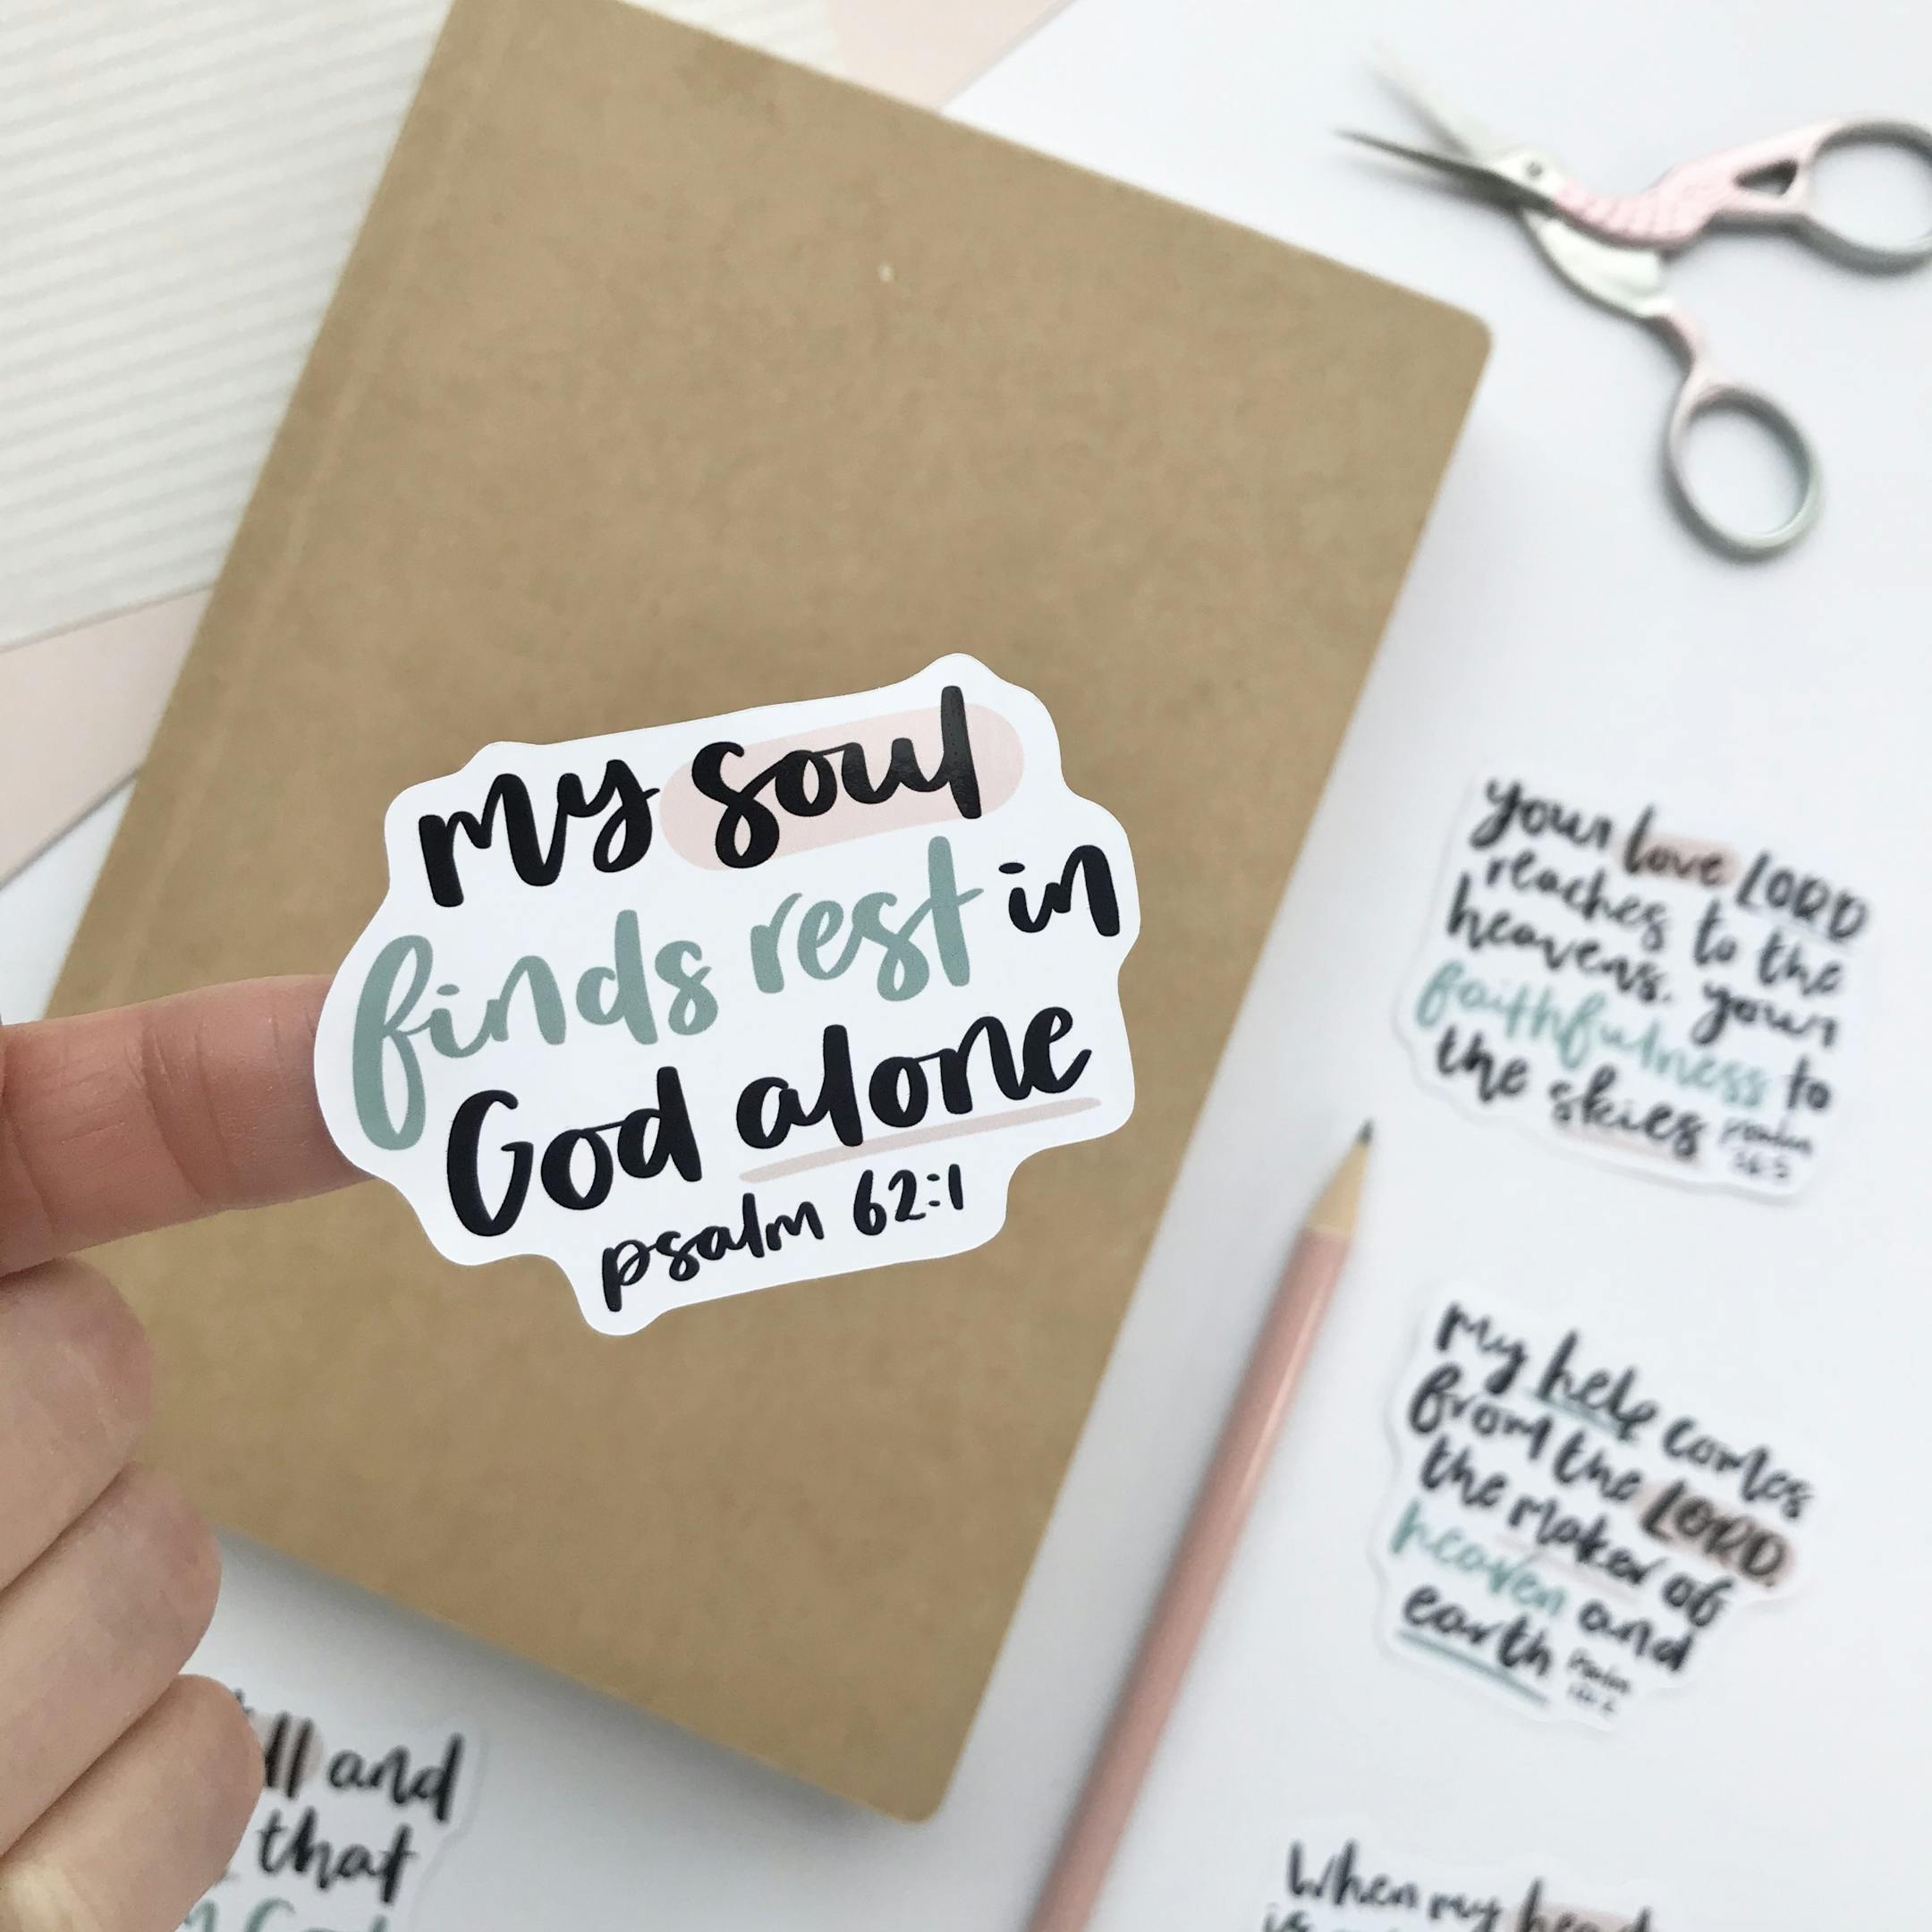 my soul
finds rest in
God alone
psalm 62:1
your love LORD
reaches to the
heavens. your
faithfulness to
the skies psalm
36:5
my help comes
from the LORD.
the maker of
heaven and
earth psalm
and
that
When my heart
is